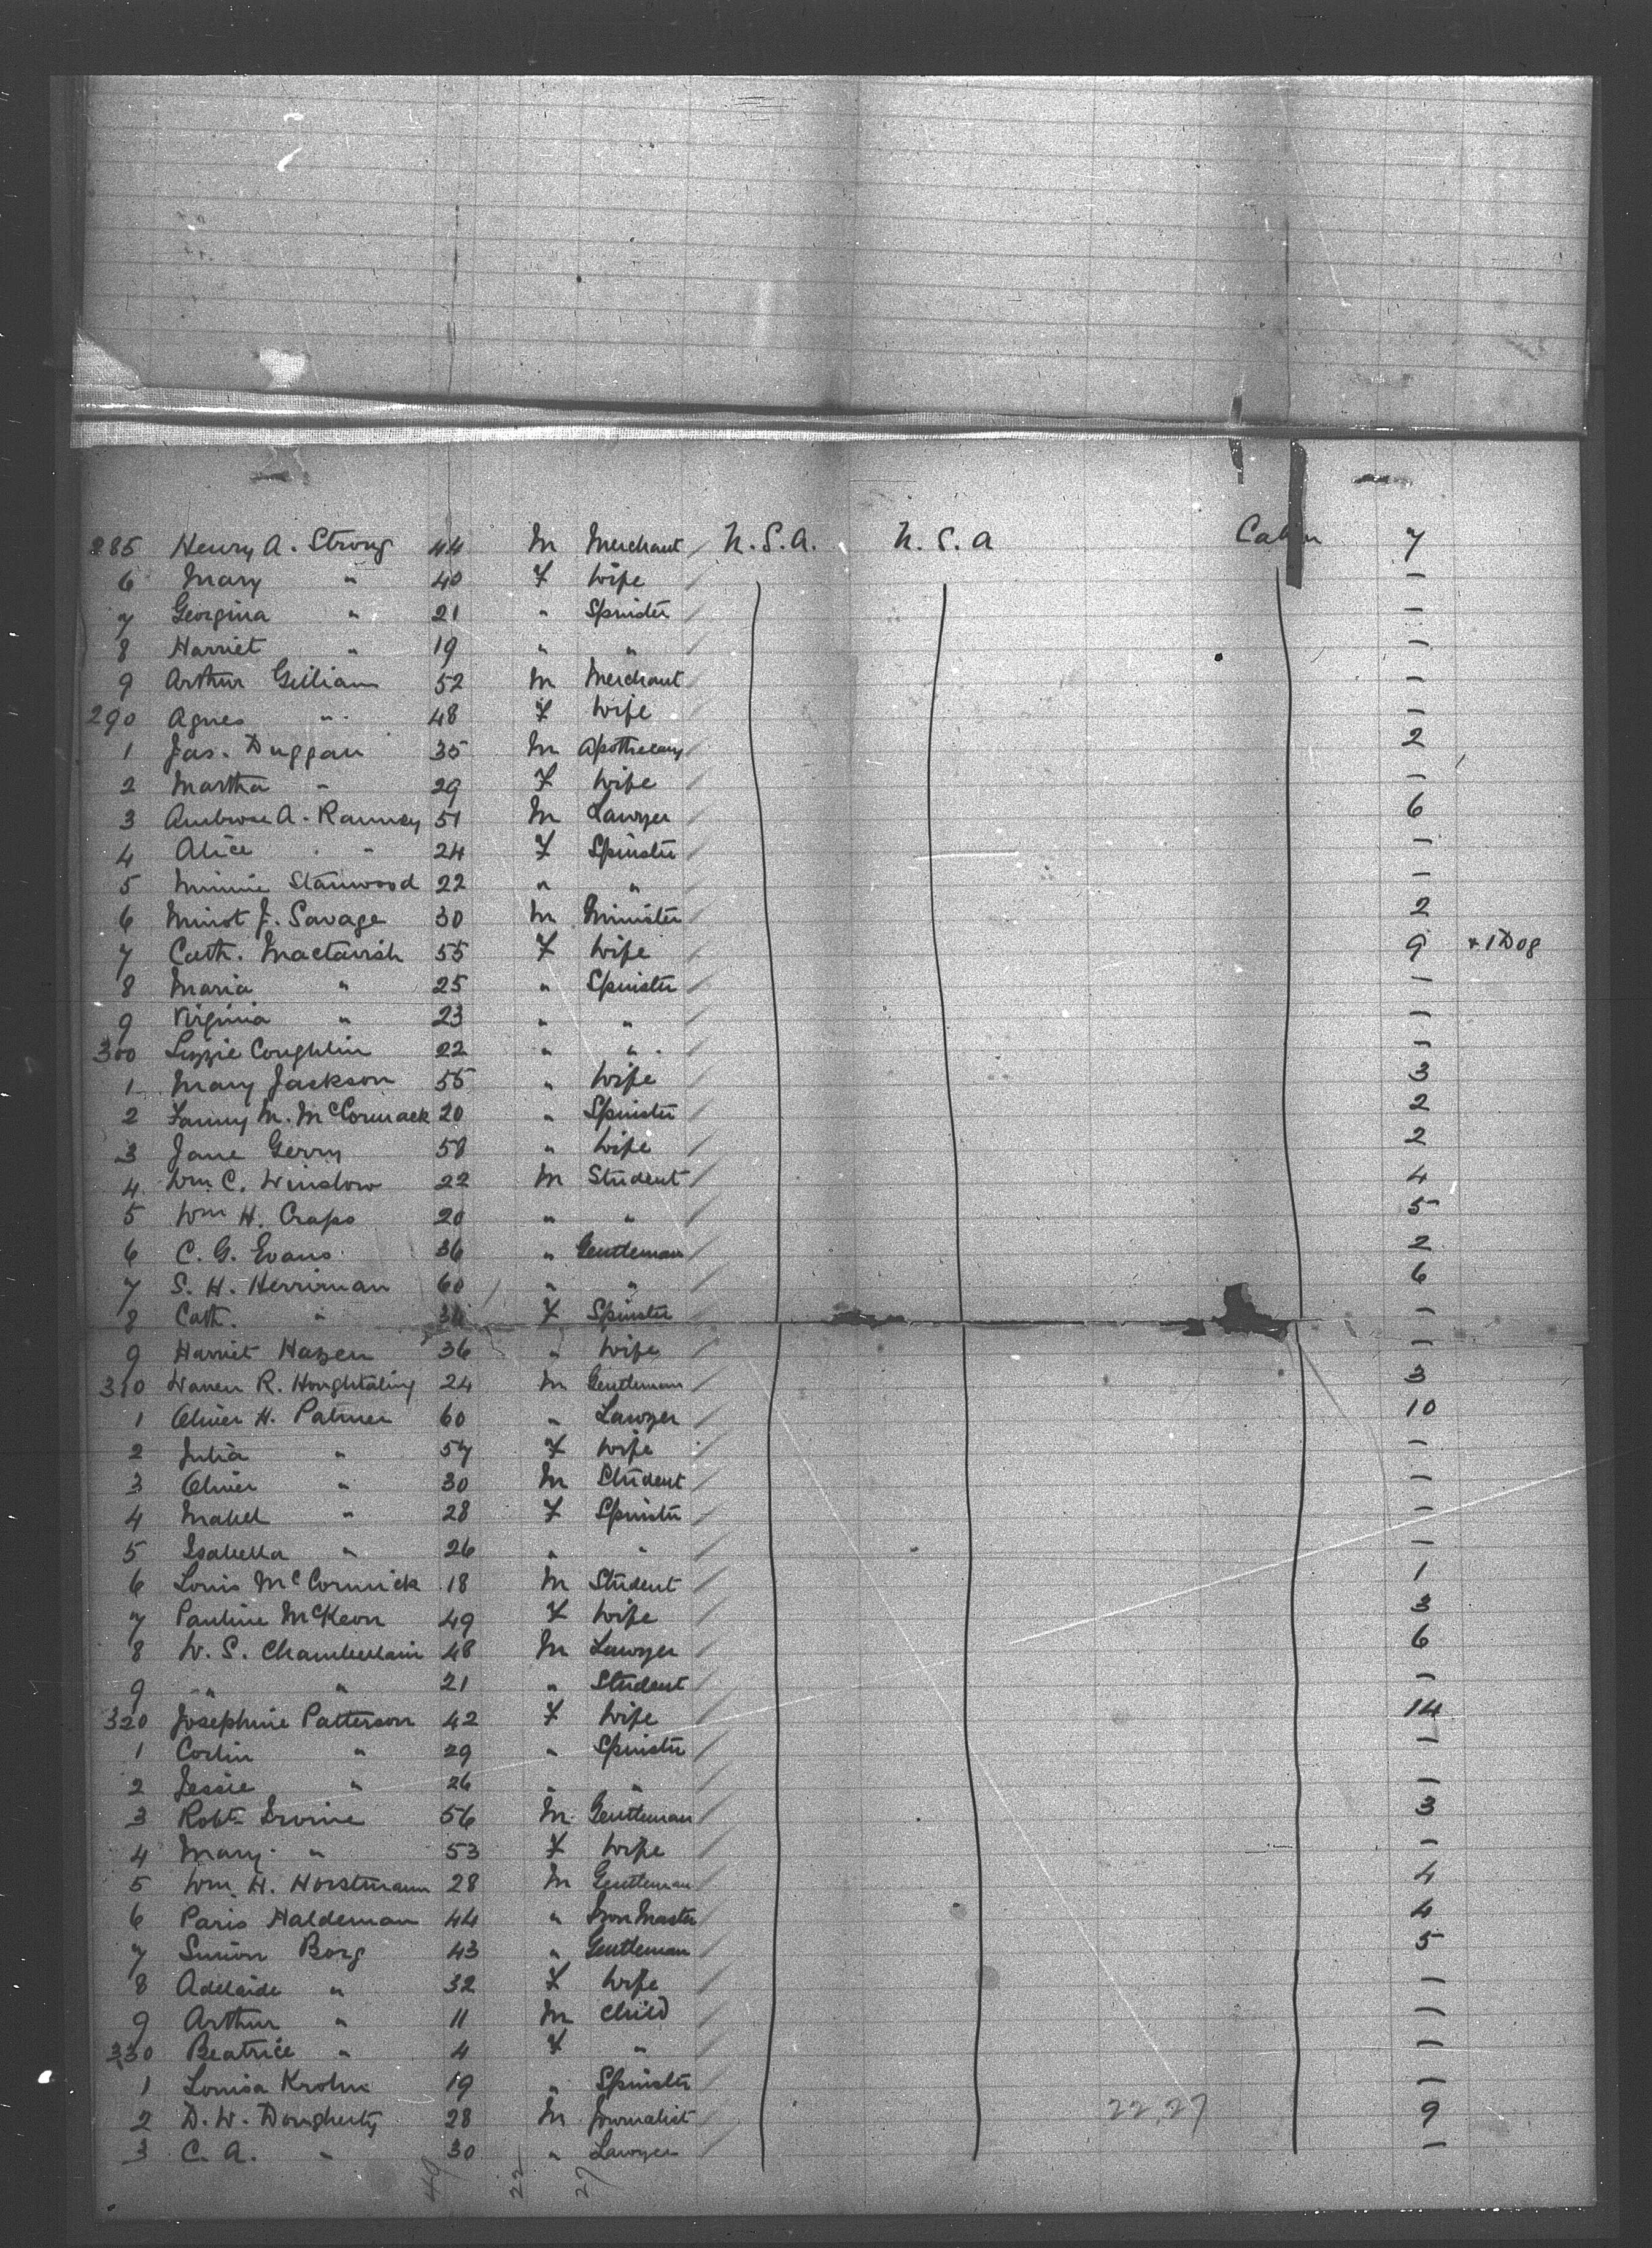 285 Henry A. Strong 44 M Merchant U.S.A. U.S.A Cabin 7
6 Mary " 40 F Wife —
7 Georgina " 21 " Spinster —
8 Harriet " 19 " " —
9 Arthur Gilliam 52 M Merchant —
290 Agnes " 48 F Wife —
1 Jas. Duggan 35 M Apothecary 2
2 Martha " 29 F Wife —
3 Ambrose A. Ranney 51 M Lawyer 6
4 Alice " 24 F Spinster —
5 Minnie Stanwood 22 " " —
6 Minot J. Savage 30 M Minister 2
7 Cath. Mactavish 55 F Wife 9 + 1 Dog
8 Maria " 25 " Spinster —
9 Virginia " 23 " " —
300 Lizzie Coughlin 22 " " —
1 Mary Jackson 55 " Wife 3
2 Fanny M. McCormack 20 " Spinster 2
3 Jane Gerry 58 " Wife 2
4 Wm C. Winslow 22 M Student 4
5 Wm H. Crapo 20 " " 5
6 C. G. Evans 36 " Gentleman 2
7 S. H. Herriman 60 " " 6
8 Cath. " F Spinster —
9 Harriet Hazen 36 " Wife —
310 Warren R. Houghtaling 24 M Gentleman 3
1 Oliver H. Palmer 60 " Lawyer 10
2 Julia " 57 F Wife —
3 Oliver " 30 M Student —
4 Mabel " 28 F Spinster —
5 Isabella " 26 " " —
6 Louis McCormick 18 M Student 1
7 Pauline McKeon 49 F Wife 3
8 W. S. Chamberlain 48 M Lawyer 6
9 " " 21 " Student —
320 Josephine Patterson 42 F Wife 14
1 Corlin " 29 " Spinster —
2 Jessie " 26 " " —
3 Robt Irvine 56 M Gentleman 3
4 Mary " 53 F Wife —
5 Wm. H. Horstmann 28 M Gentleman 4
6 Paris Haldeman 44 " Iron Master 4
7 Simon Borg 43 " Gentleman 5
8 Adelaide " 32 F Wife —
9 Arthur " 11 M Child —
330 Beatrice " 4 F " —
1 Louisa Krohn 19 " Spinster —
2 D. W. Dougherty 28 M Journalist 22.27 9
3 C. A. " 30 " Lawyer —
49 22 27